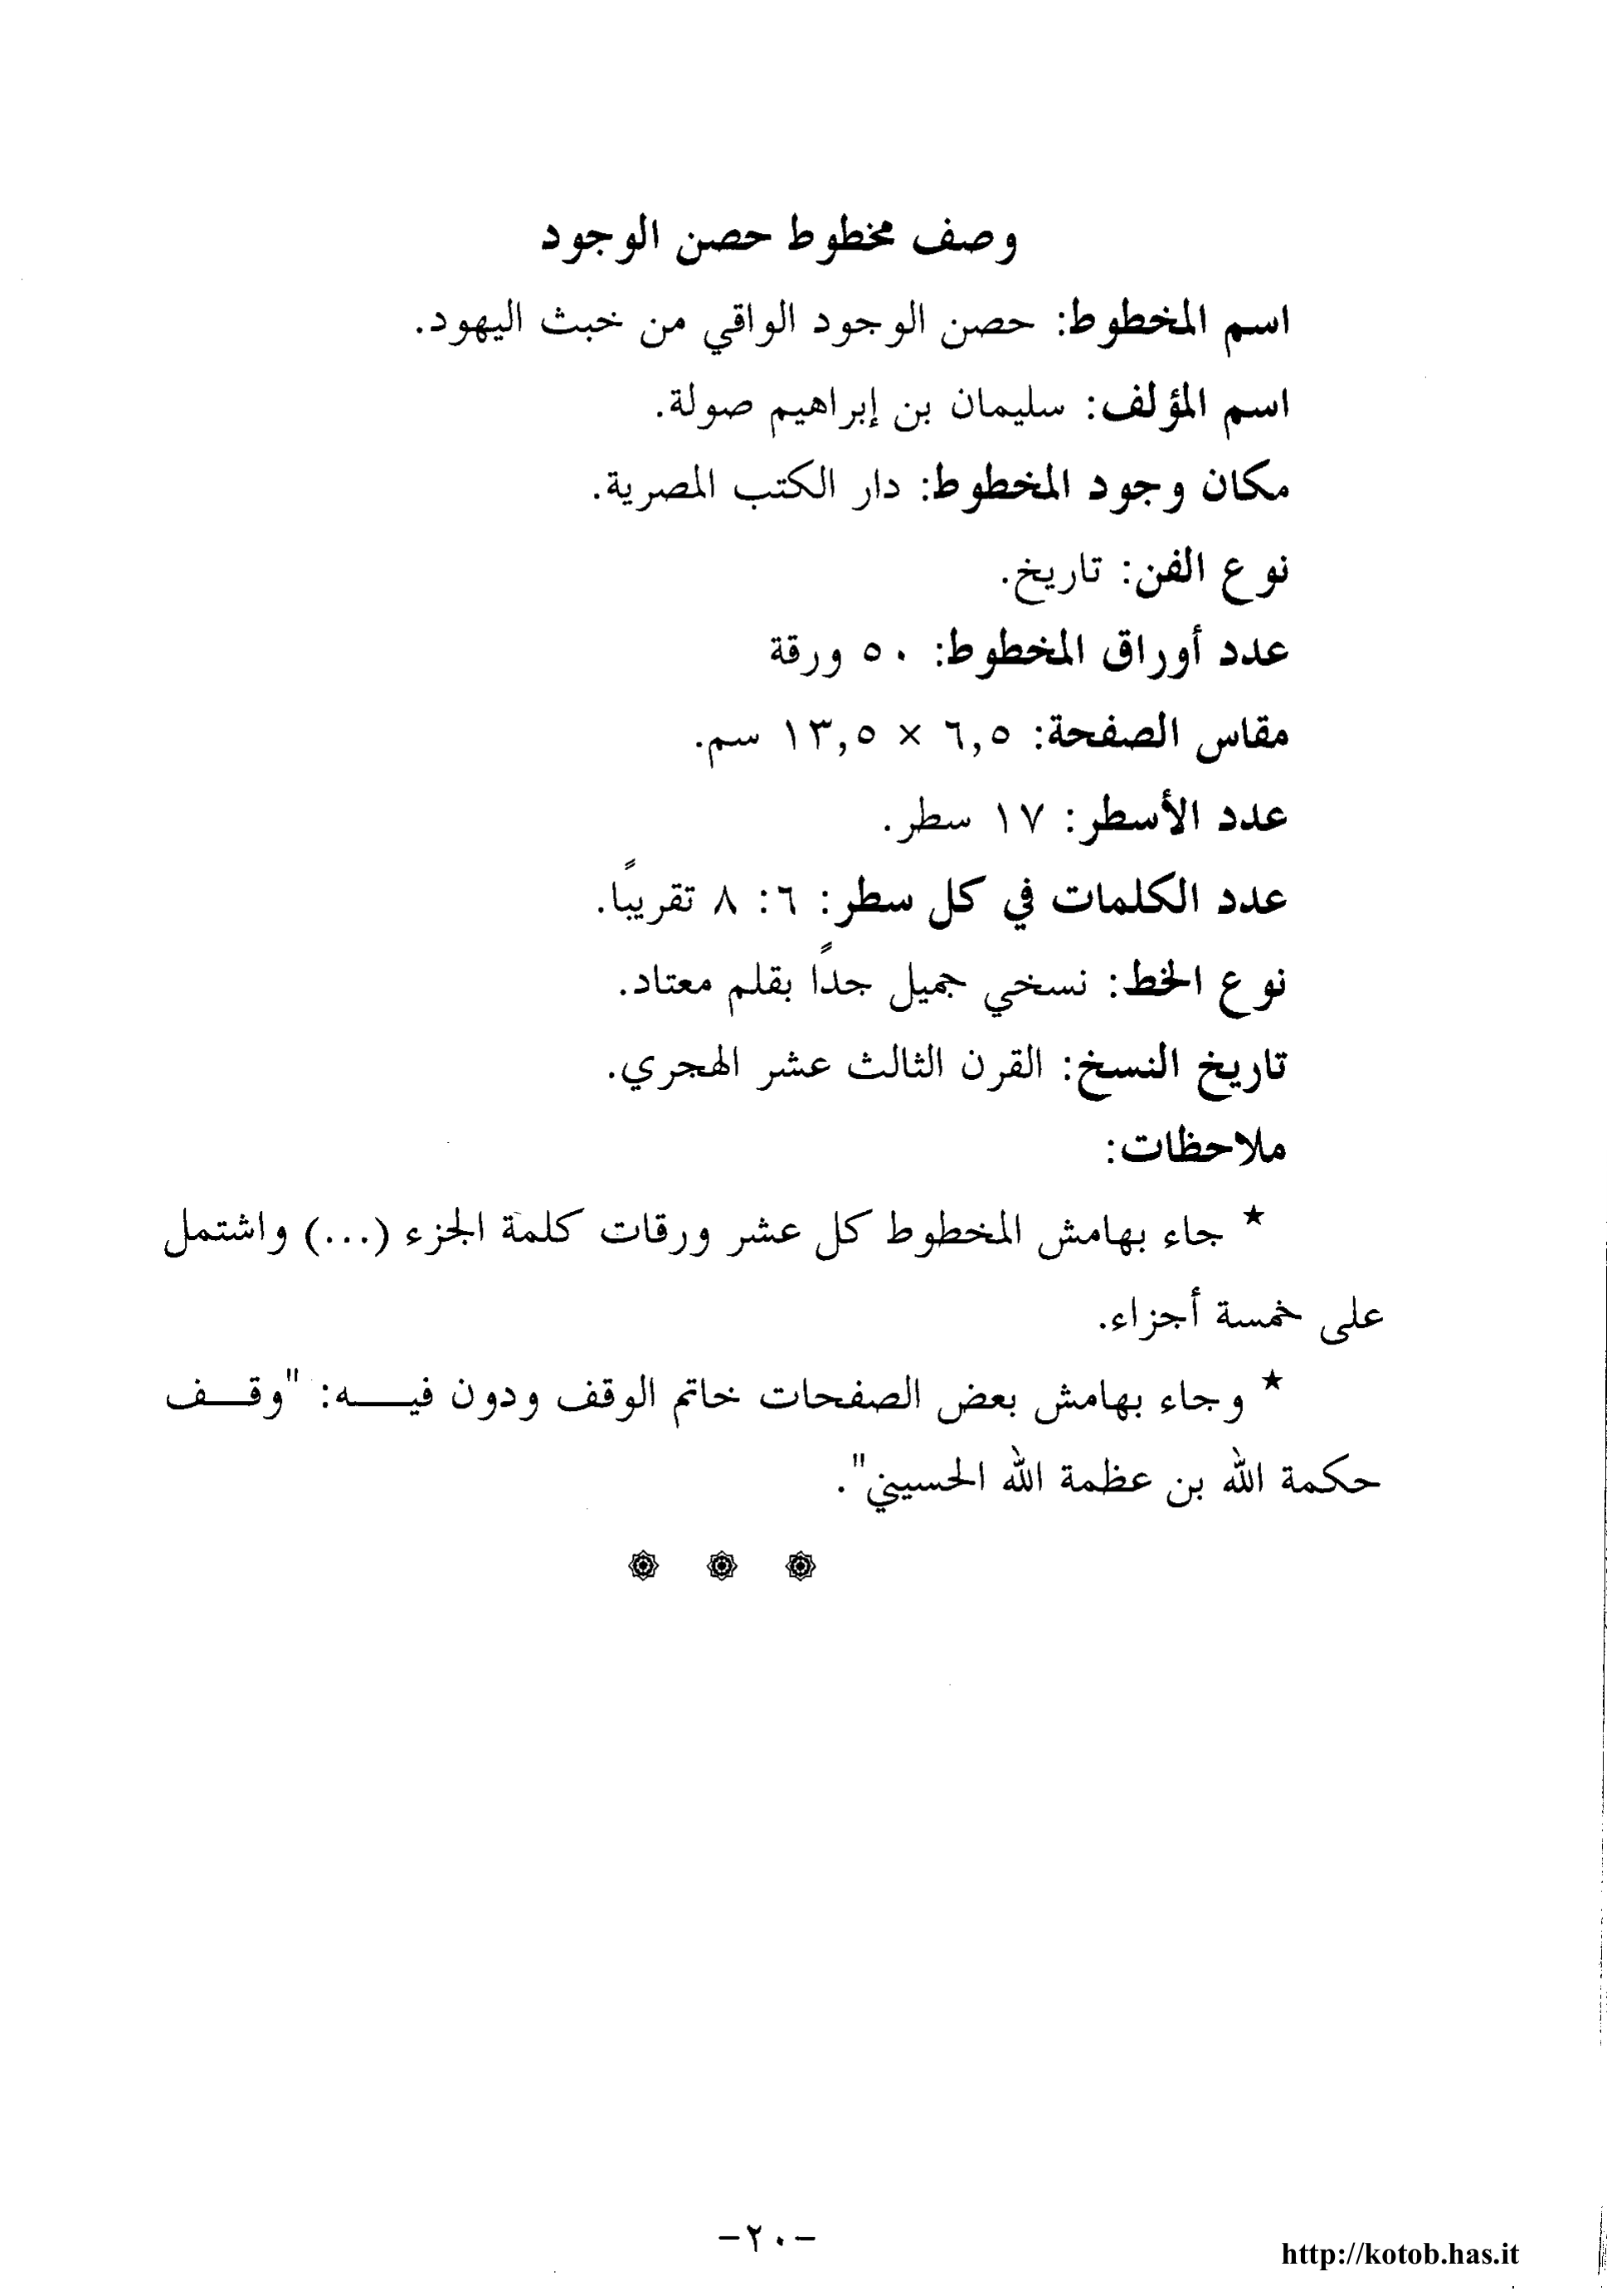 وصف مخطوط حصن الوجود
اسم المخطوط: حصن الوجود الواقي من خبث اليهود.
اسم المؤلف: سليمان بن إبراهيم صولة.
مكان وجود المخطوط: دار الكتب المصرية.
نوع الفن: تاريخ.
عدد أوراق المخطوط: ٥٠ ورقة
مقاس الصفحة: ٦,٥ × ١٣,٥ سم.
عدد الأسطر: ١٧ سطر.
عدد الكلمات في كل سطر: ٦: ٨ تقريبًا.
نوع الخط: نسخي جميل جدًا بقلم معتاد.
تاريخ النسخ: القرن الثالث عشر الهجري.
ملاحظات:
* جاء بهامش المخطوط كل عشر ورقات كلمة الجزء (...) واشتمل
على خمسة أجزاء.
* وجاء بهامش بعض الصفحات خاتم الوقف ودون فيـــه: "وقـــف
حكمة الله بن عظمة الله الحسيني".
-٢٠-
http://kotob.has.it